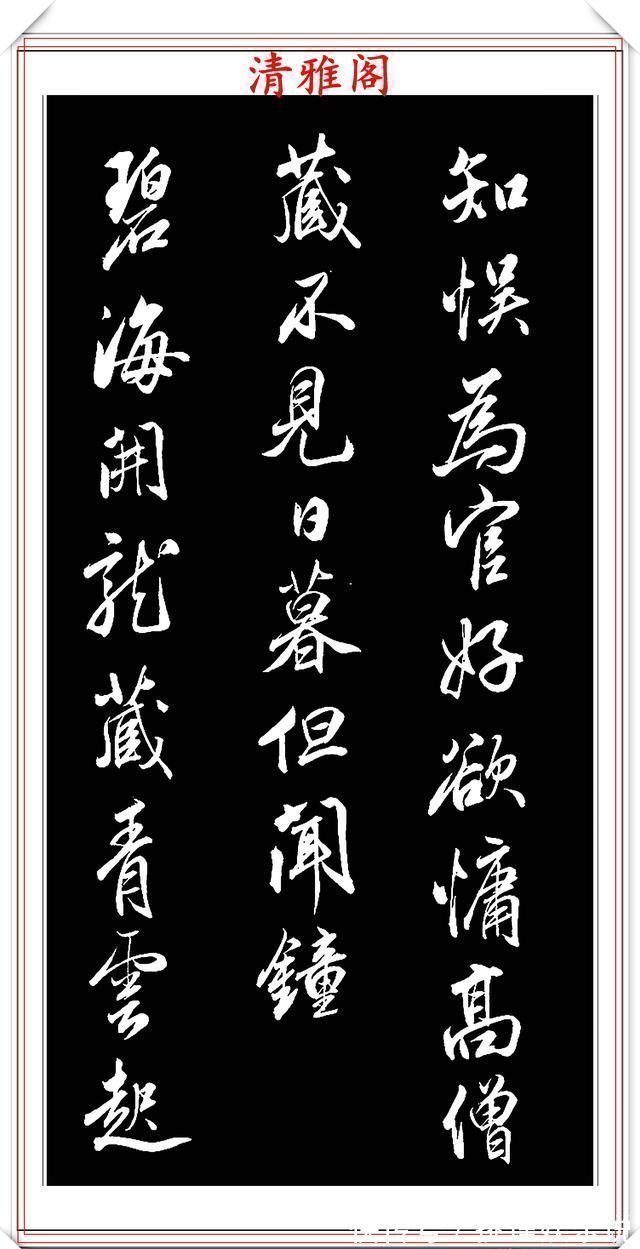 清雅阁
知悮為官好欲慵高僧
藏不見日暮但聞鐘
碧海開龍藏青雲起